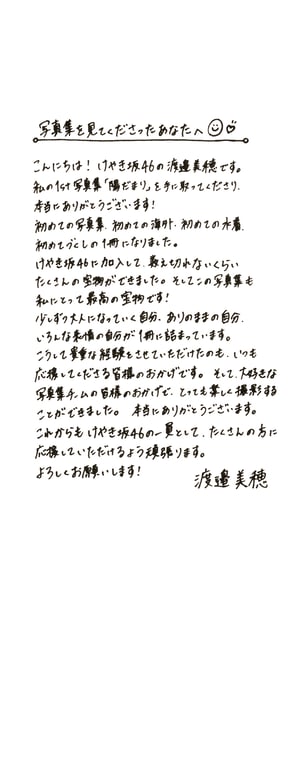 写真集を見てくださったあなたへ
こんにちは！けやき坂46の渡邉美穂です。
私の1st写真集「陽だまり」を手に取ってくださり、
本当にありがとうございます！
初めての写真集、初めての海外、初めての水着、
初めてづくしの1冊になりました。
けやき坂46に加入して、数え切れないくらい
たくさんの宝物ができました。そしてこの写真集も
私にとって最高の宝物です！
少しずつ大人になっていく自分、ありのままの自分、
いろんな表情の自分が1冊に詰まっています。
こうして貴重な経験をさせていただけたのも、いつも
応援してくださる皆様のおかげです。そして、大好きな
写真集チームの皆様のおかげで、とっても楽しく撮影する
ことができました。本当にありがとうございます。
これからもけやき坂46の一員として、たくさんの方に
応援していただけるよう頑張ります。
よろしくお願いします！
渡邉美穂